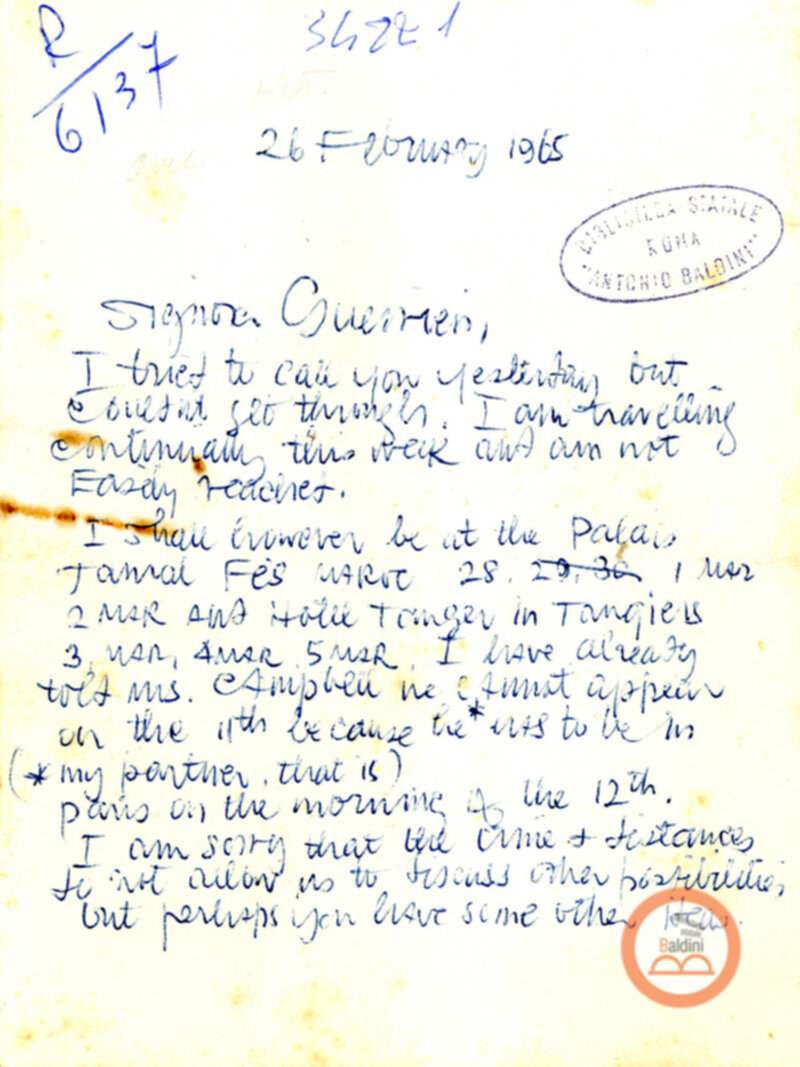 R/6137
34221
26 February 1965
BIBLIOTECA STATALE
ROMA
"ANTONIO BALDINI"
Signora Guerrieri,
I tried to call you yesterday but
couldnt get through. I am travelling
continually this week and am not
Easily reached.
I shall however be at the Palais
Jamai Fès MAROC 28. 29, 30 1 MAR
2 MAR and Hotel Tanger in Tangiers
3, MAR, 4 MAR 5 MAR. I have already
told ms. Campbell we cannot appear
on the 11th because he* has to be in
(* my partner, that is)
paris on the morning of the 12th.
I am sorry that the time + distances
do not allow us to discuss other possibilities
but perhaps you have some other idea.
Baldini